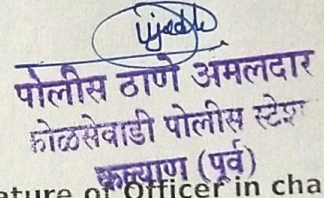 पोलीस ठाणे अंमलदार
कोळसेवाडी पोलीस स्टेश
कल्याण (पूर्व)
ature of Officer in cha